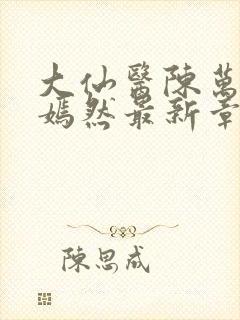 大仙醫陳萬
嫣然最新章
陳思成